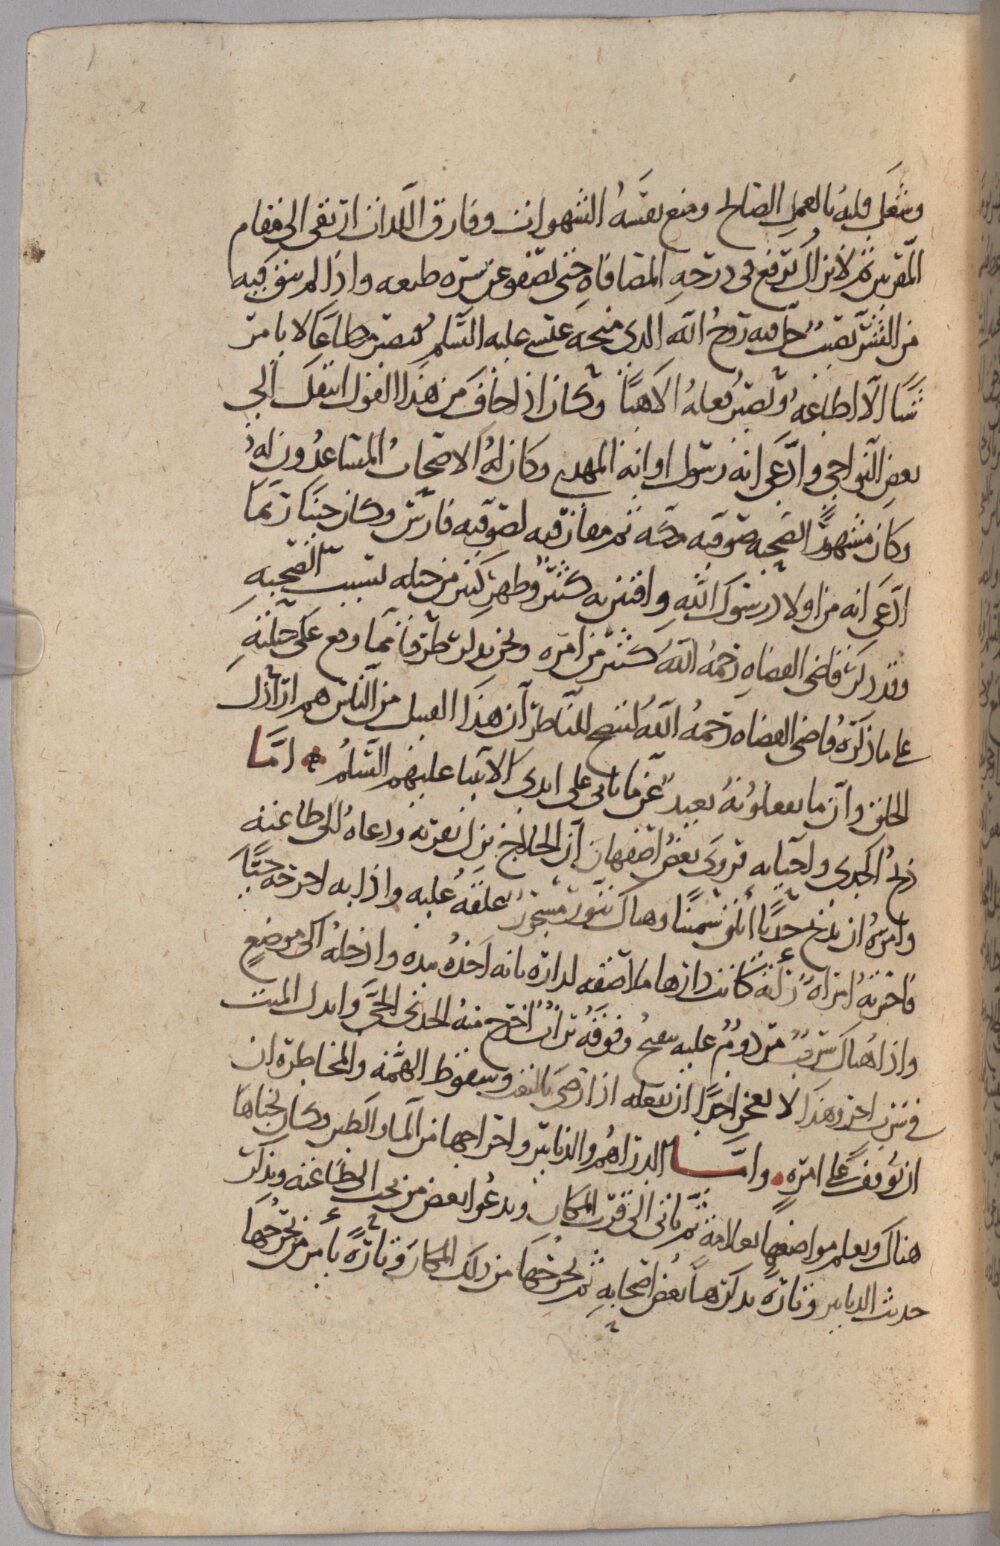 وشغل قلبه بالعمل الصالح ومنع نفسه الشهوات وفارق اللذات ارتقى الى مقام
المقربين ثم لا يزال يرتفع في درجه المصافاه حتى تصفو عن بشره طبعه واذا لم يبق فيه
من البشر نصيب حل فيه روح الله الذي منحه عيسى عليه السلم فيصير مطاعا لا يامر
شيا الا اطاعه وتصير فعله الاهيا وكان اذا خاف من هذا القول انتقل الى
بعض النواحي وادعى انه رسول او انه المهدي وكان له الاصحاب المساعدون له
وكان مشهور الصحبه صوفيه مكه ثم مفارقيه لصوفيه فارس وكان حينا ربما
ادعى انه من اولاد رسول الله وافتتن به كثير وظهر كثير من حيله بسبب الصحبه
وقد ذكر قاضي القضاه رحمه الله كثيرا من امره ونحن نذكر طرفا مما وقع على حيلته
على ما ذكره قاضي القضاه رحمه الله ليتضح للناظر ان هذا القبيل من الناس هم اراذل
الخلق وان ما يفعلونه بعيد عن ما ياتي على ايدي الانبيا عليهم السلم اما
ذبح الجدي واحيايه فروى بعض اصفهان ان الحلاج نزل بقربه ودعاه الى طاعته
وامره ان يذبح جديا ابلق سمينا وهناك تنور مسجور علقه عليه واذا به اخرجه حيا
فاخبرته امراه دله كانت دارها ملاصقه لداره بانه اخذه بيده وادخله الى موضع
واذا هناك سرب مردوم عليه سفح وفوقه تراب اخرج منه الجدي الحي وابدل الميت
في سرب اخر وهذا لا يعجز احدا ان يفعله اذا رضى بالبعد وسقوط الهمه والمخاطره ان
ان يوقف على امره واما الدراهم والدنانير واخراجها من الما والطين وكان يخباها
هناك ويعلم مواضعها بعلامة ثم ياتي الى قرب المكان ويدعوا بعض من يجب الى طاعته ويذكر
حديث الدنانير وتاره يذكرها بعض اصحابه ثم يخرجها من ذلك المكان وتاره يامر من يخرجها